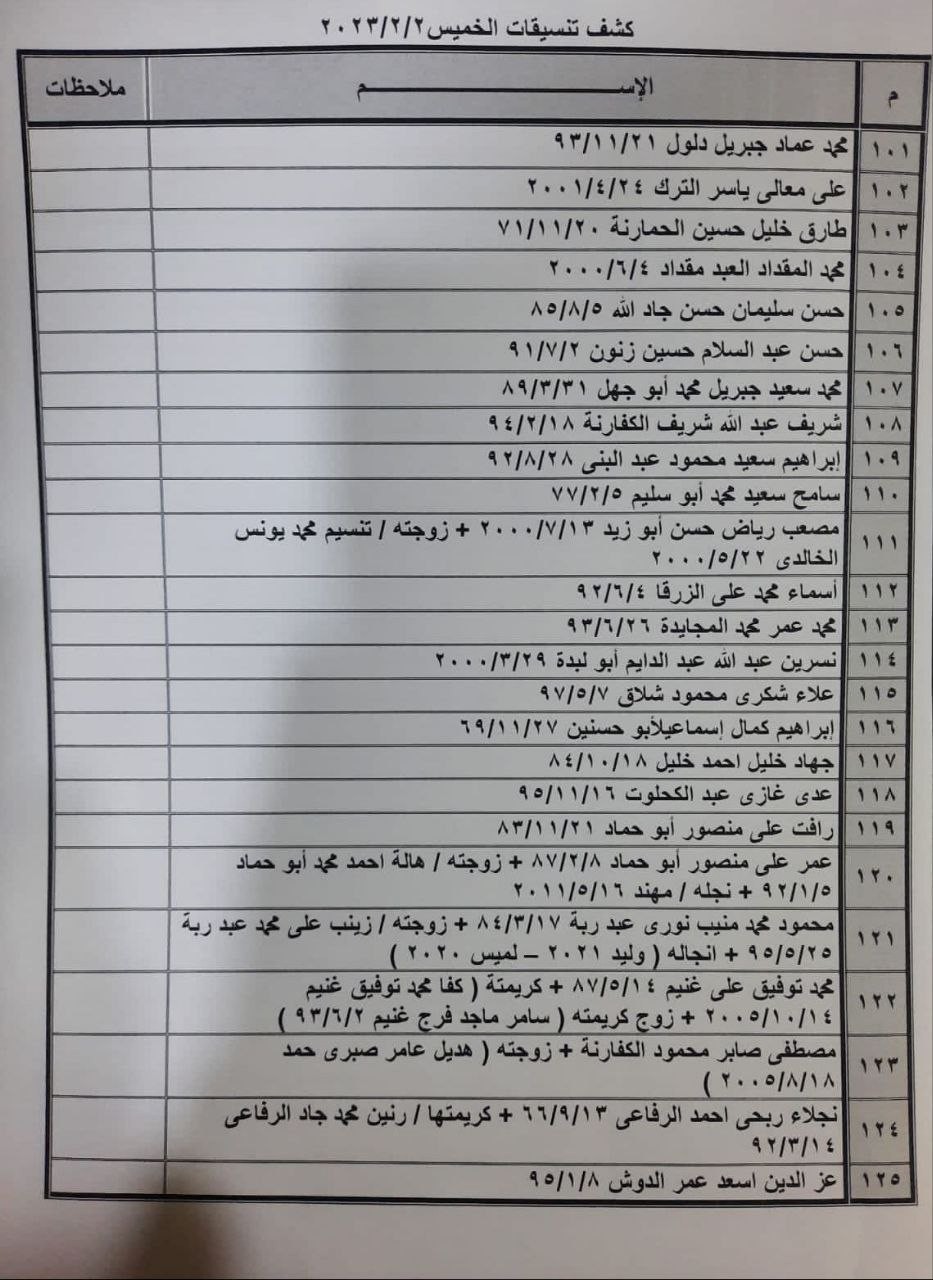 كشف تنسيقات الخميس ٢٠٢٣/٢/٢
م الإســـــــــــم ملاحظات
١٠١ محمد عماد جبريل دلول ٩٣/١١/٢١
١٠٢ على معالى ياسر الترك ٢٠٠١/٤/٢٤
١٠٣ طارق خليل حسين الحمارنة ٧١/١١/٢٠
١٠٤ محمد المقداد العبد مقداد ٢٠٠٠/٦/٤
١٠٥ حسن سليمان حسن جاد الله ٨٥/٨/٥
١٠٦ حسن عبد السلام حسين زنون ٩١/٧/٢
١٠٧ محمد سعيد جبريل محمد أبو جهل ٨٩/٣/٣١
١٠٨ شريف عبد الله شريف الكفارنة ٩٤/٢/١٨
١٠٩ إبراهيم سعيد محمود عبد البنى ٩٢/٨/٢٨
١١٠ سامح سعيد محمد أبو سليم ٧٧/٢/٥
١١١ مصعب رياض حسن أبو زيد ٢٠٠٠/٧/١٣ + زوجته / تنسيم محمد يونس
الخالدى ٢٠٠٠/٥/٢٢
١١٢ أسماء محمد على الزرقا ٩٢/٦/٤
١١٣ محمد عمر محمد المجايدة ٩٣/٦/٢٦
١١٤ نسرين عبد الله عبد الدايم أبو لبدة ٢٠٠٠/٣/٢٩
١١٥ علاء شكرى محمود شلاق ٩٧/٥/٧
١١٦ إبراهيم كمال إسماعيلأبو حسنين ٦٩/١١/٢٧
١١٧ جهاد خليل احمد خليل ٨٤/١٠/١٨
١١٨ عدى غازى عبد الكحلوت ٩٥/١١/١٦
١١٩ رافت على منصور أبو حماد ٨٣/١١/٢١
١٢٠ عمر على منصور أبو حماد ٨٧/٢/٨ + زوجته / هالة احمد محمد أبو حماد
٩٢/١/٥ + نجله / مهند ٢٠١١/٥/١٦
١٢١ محمود محمد منيب نورى عبد ربة ٨٤/٣/١٧ + زوجته / زينب على محمد عبد ربة
٩٥/٥/٢٥ + انجاله ( وليد ٢٠٢١ – لميس ٢٠٢٠ )
١٢٢ محمد توفيق على غنيم ٨٧/٥/١٤ + كريمتة ( كفا محمد توفيق غنيم
٢٠٠٥/١٠/١٤ + زوج كريمته ( سامر ماجد فرج غنيم ٩٣/٦/٢ )
١٢٣ مصطفى صابر محمود الكفارنة + زوجته ( هديل عامر صبرى حمد
٢٠٠٥/٨/١٨ )
١٢٤ نجلاء ربحى احمد الرفاعى ٦٦/٩/١٣ + كريمتها / رنين محمد جاد الرفاعى
٩٢/٣/١٤
١٢٥ عز الدين اسعد عمر الدوش ٩٥/١/٨